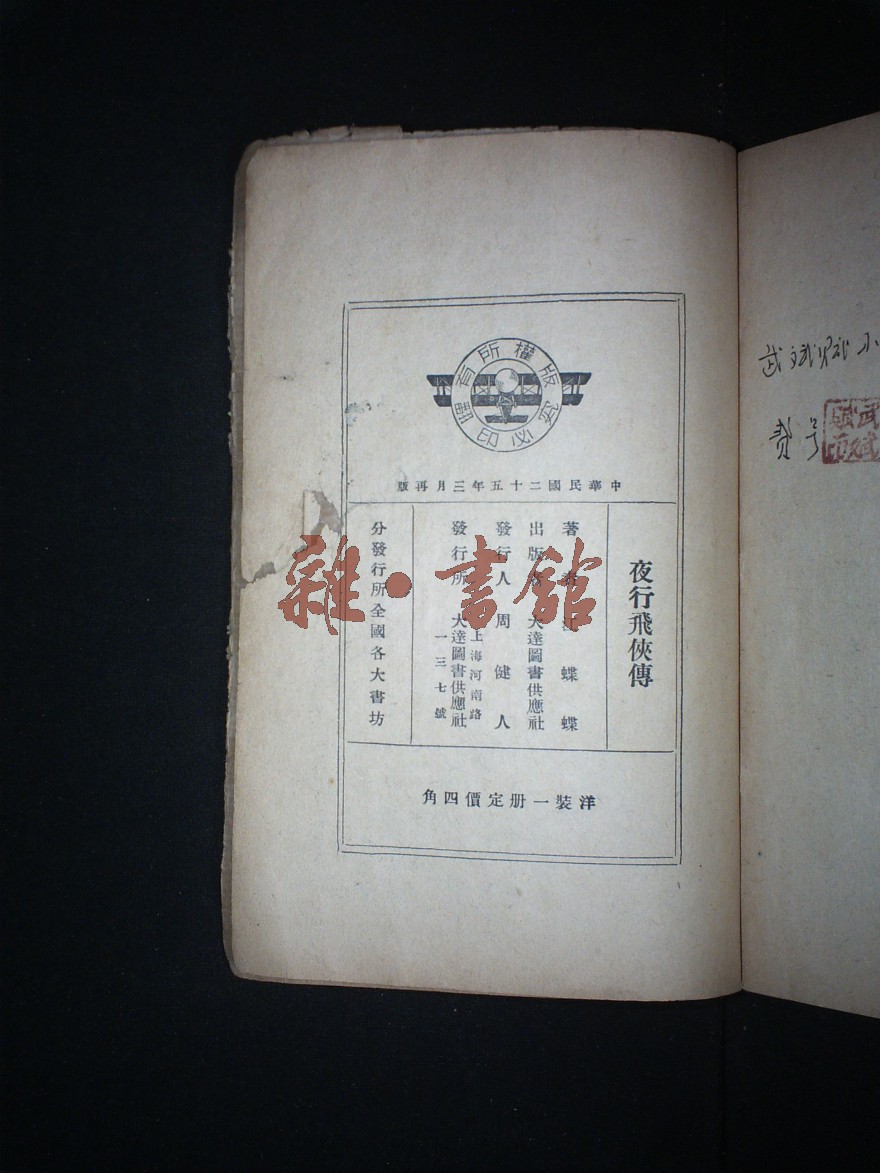 版權所有
翻印必究
中華民國二十五年三月再版
夜行飛俠傳
著者 江蝶蝶
出版者 大達圖書供應社
發行人 周健人
發行所 大達圖書供應社
上海河南路
一三七號
分發行所全國各大書坊
洋裝一册定價四角
雜·書館